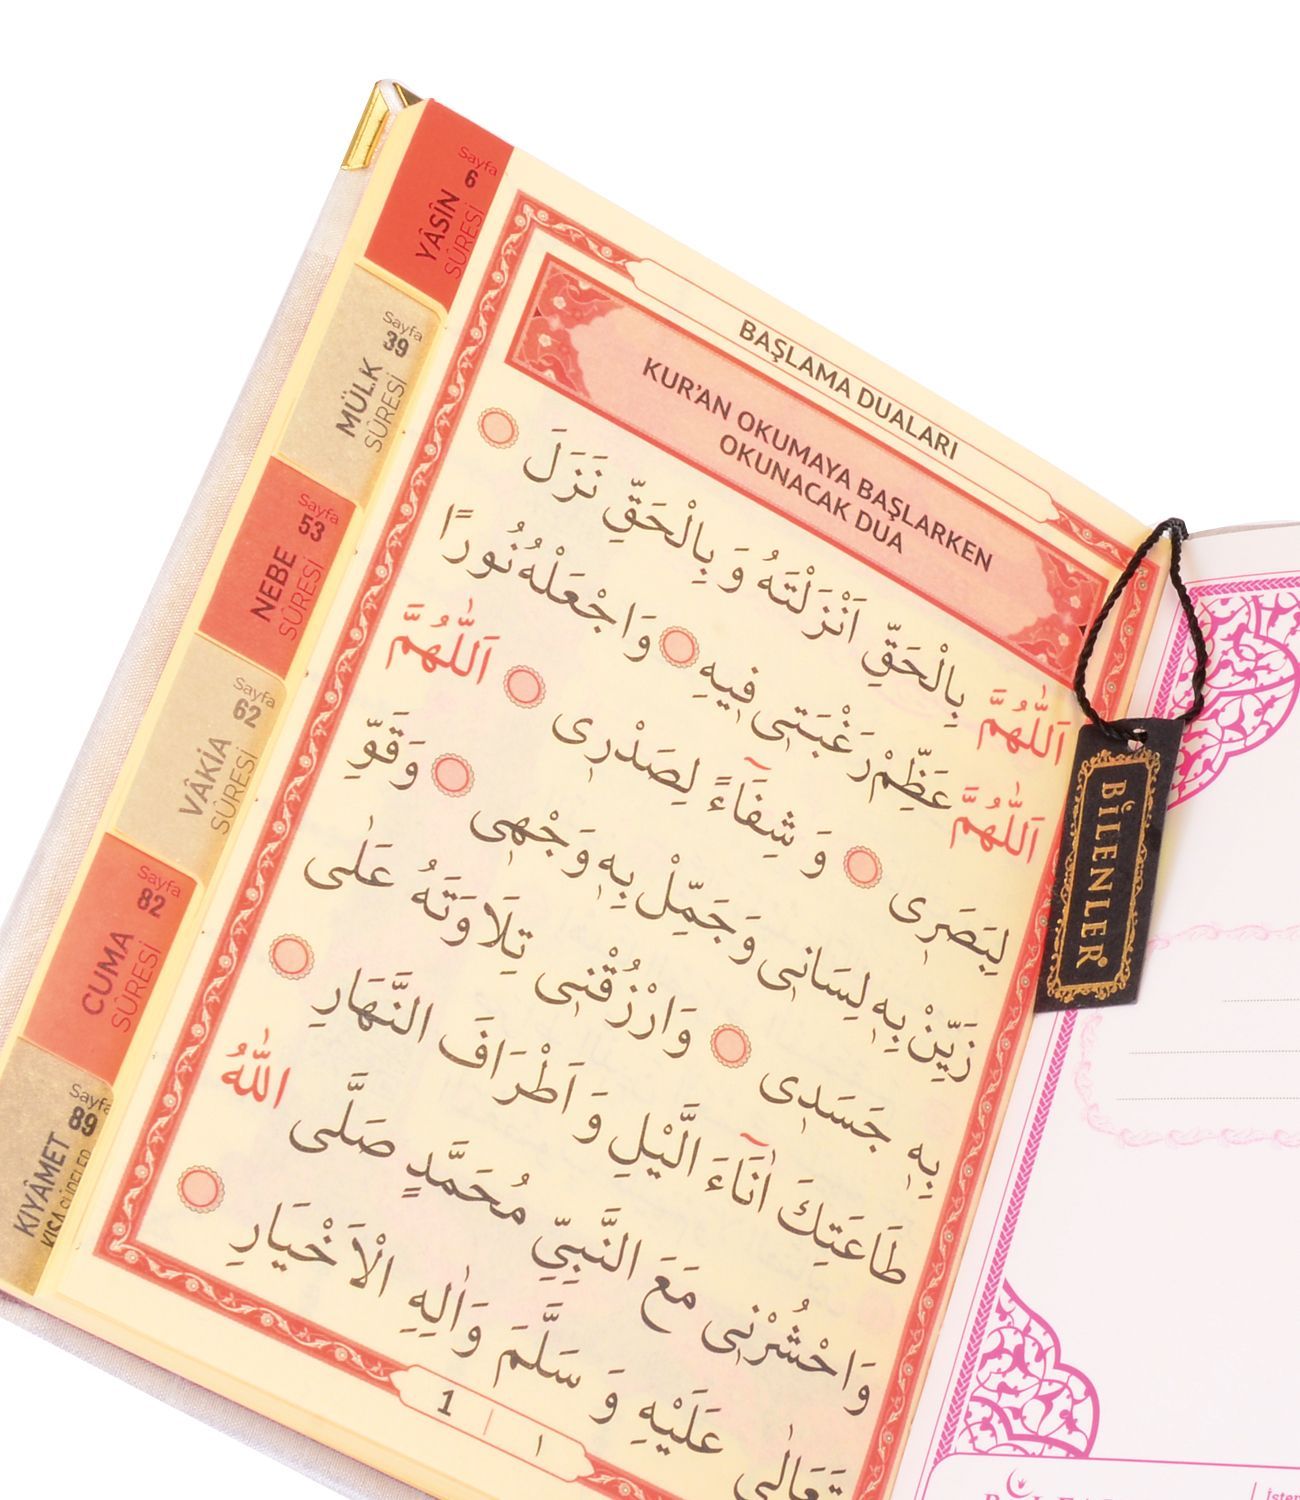 Sayfa
6
YÂSÎN
SÛRESİ
Sayfa
39
MÜLK
SÛRESİ
Sayfa
53
NEBE
SÛRESİ
Sayfa
62
VÂKİA
SÛRESİ
Sayfa
82
CUMA
SÛRESİ
Sayfa
89
KIYÂMET
KISA SÛRELER
BAŞLAMA DUALARI
KUR’AN OKUMAYA BAŞLARKEN
OKUNACAK DUA
اَللّٰهُمَّ بِالْحَقِّ اَنْزَلْتَهُ وَ بِالْحَقِّ نَزَلَ
اَللّٰهُمَّ عَظِّمْ رَغْبَتٖى فٖيهِ وَاجْعَلْهُ نُورًا
لِبَصَرٖى وَ شِفَٓاءً لِصَدْرٖى اَللّٰهُمَّ
زَيِّنْ بِهٖ لِسَانٖى وَجَمِّلْ بِهٖ وَجْهٖى وَقَوِّ
بِهٖ جَسَدٖى وَارْزُقْنٖى تِلَاوَتَهُ عَلٰى
طَاعَتِكَ اٰنَٓاءَ الَّيْلِ وَ اَطْرَافَ النَّهَارِ
وَاحْشُرْنٖى مَعَ النَّبِيِّ مُحَمَّدٍ صَلَّى اللّٰهُ
تَعَالٰى عَلَيْهِ وَ سَلَّمَ وَاٰلِهِ الْاَخْيَارِ
1 | ١
BİLENLER